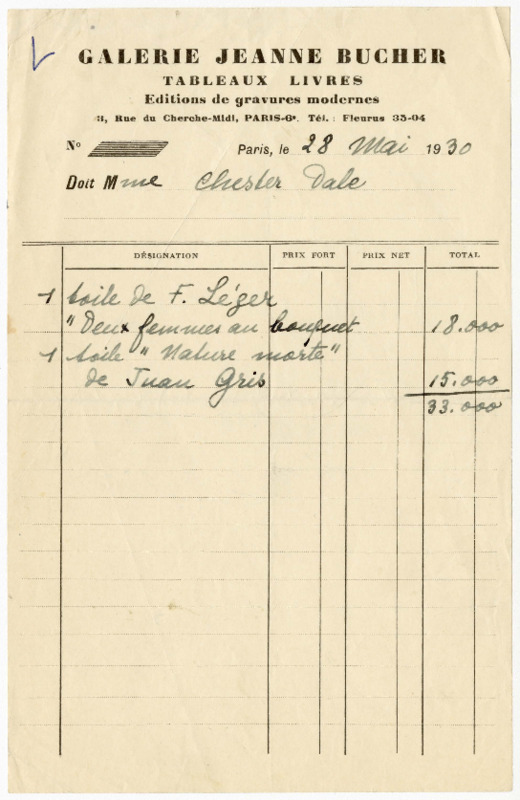 GALERIE JEANNE BUCHER
TABLEAUX LIVRES
Editions de gravures modernes
3, Rue du Cherche-Midi, PARIS-6e. Tél. : Fleurus 35-04
No
Paris, le 28 Mai 1930
Doit Mme Chester Dale
DÉSIGNATION PRIX FORT PRIX NET TOTAL
1 toile de F. Léger
"Deux femmes au bouquet 18.000
1 toile "Nature morte"
de Juan Gris 15.000
33.000